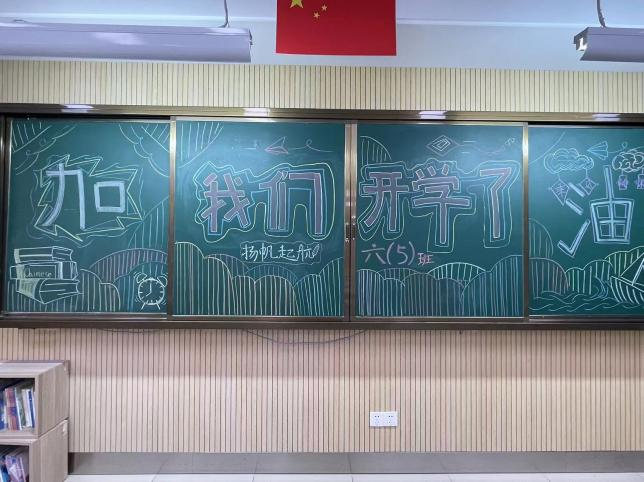 加
我们
开学了
油
扬帆起航
六(5)班
Chinese